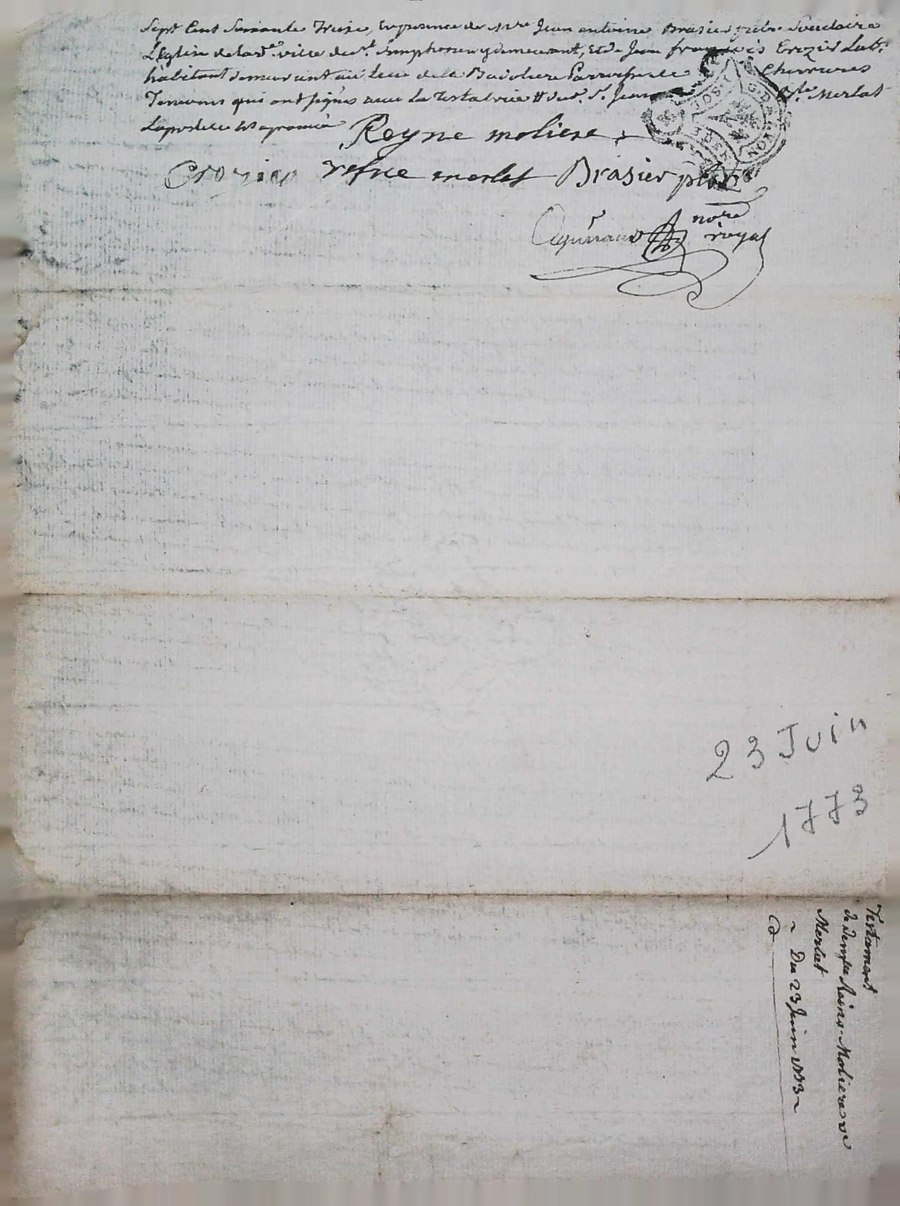 Sept Cent Soixante Treize, En presence de mre Jean antoine Brasier prêtre Societaire
L'Eglise de lad. ville de st. Simphorien y demeurant, et de Jean françois Crozier Lab.
habitant demeurant au Lieu de la Parroisse de Cherrieres
Temoins qui ont signés avec La Testatrice et de. sr. Jean Merlat
Lapostille approuvée
Reyne moliere
Crozier refve merlat Brasier ptre
nore
royal
23 Juin
1773
Testament
de demlle Reine Moliere ve
Merlat
Du 23 Juin 1773